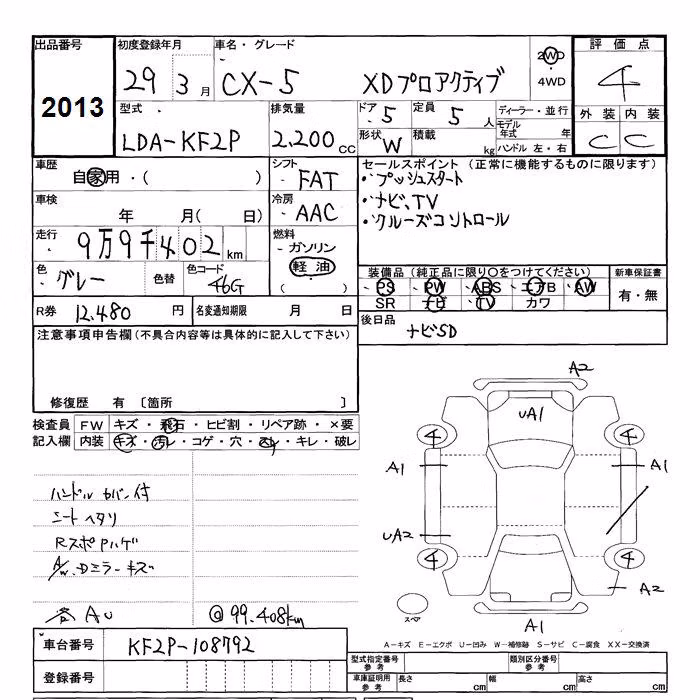 出品番号
2013
初度登録年月
29 3 月
車名・グレード
CX-5 XDプロアクティブ
2WD
・
4WD
評価点
4
型式
LDA-KF2P
排気量
2.200 CC
ドア
・5
定員
5 人
ディーラー・並行
モデル
年式 年
形状
W
積載
kg
ハンドル 左・右
外装 内装
C C
車歴
自家用・( )
シフト
・FAT
車検
年 月( 日)
冷房
・AAC
セールスポイント（正常に機能するものに限ります）
・プッシュスタート
・ナビ、TV
・クルーズコントロール
走行
9万9千402 km
燃料
・ガソリン
軽油
( )
色
・グレー
色替
色コード
46G
装備品（純正品に限り○をつけてください）
・PS ・PW ・ABS ・エアB ・AW
SR ナビ TV カワ
新車保証書
有・無
R券
12.480 円
名変通知期限
月 日
後日品
ナビSD
注意事項申告欄(不具合内容等は具体的に記入して下さい)
修復歴 有 〔箇所 〕
検査員
記入欄
FW キズ・飛石・ヒビ割・リペア跡・×要
内装 キズ・汚レ・コゲ・穴・スレ・キレ・破レ
ハンドルカバー付
シートヘタリ
RスポPハゲ
A/W.Dミラーキズ
AU
@99.408km
A2
uA1
4 4
A1 A1
uA2
4 4
A2
スペア
A1
A-キズ E-エクボ U-凹み W-補修跡 S-サビ C-腐食 XX-交換済
車台番号
KF2P-108792
登録番号
型式指定番号
参考
類別区分番号
参考
車庫証明用
参考
長さ cm 幅 cm 高さ cm